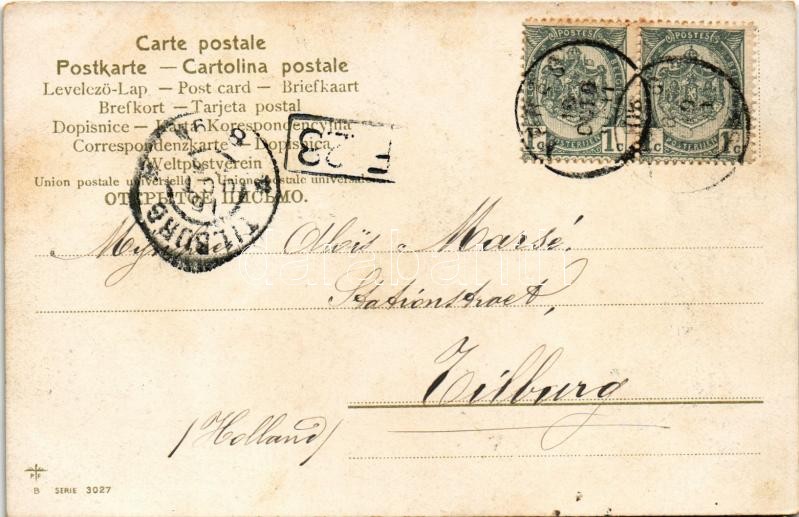 Carte postale
Postkarte — Cartolina postale
Levelezö-Lap — Post card — Briefkaart
Brefkort — Tarjeta postal
Dopisnice — Karta Korespondencyjna
Correspondenzkarte — Dopisnica
Weltpostverein
Union postale universelle — Unione postale universale
ОТКРЫТОЕ ПИСЬМО.
POSTES
1c POSTERIJEN 1c
POSTES
1c POSTERIJEN 1c
T 23
TILBURG
Aloïs Marsé.
Stationstraat,
Tilburg
(Holland)
darabanth
P F
B SERIE 3027